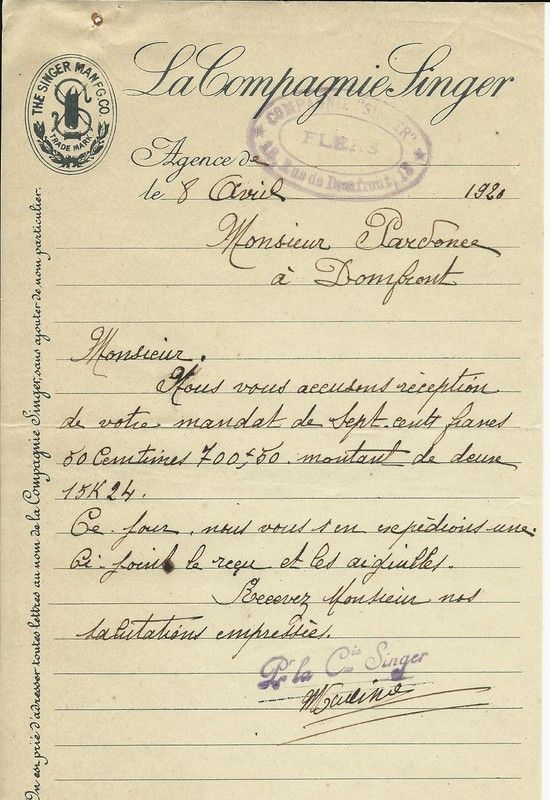 THE SINGER MANFG. CO.
TRADE MARK
La Compagnie Singer
COMPAGNIE "SINGER"
FLERS
18, Rue de Domfront, 18
Agence de
le 8 Avril 1920
Monsieur Pardonce
à Domfront
Monsieur.
Nous vous accusons réception
de votre mandat de Sept cents francs
50 Centimes 700f50. montant de deux
15K24.
Ce jour, nous vous en expédions une.
Ci-joint le reçu et les aiguilles.
Recevez Monsieur nos
salutations empressées.
Pr la Cie Singer
On est prié d'adresser toutes lettres au nom de la Compagnie Singer, sans ajouter de nom particulier.